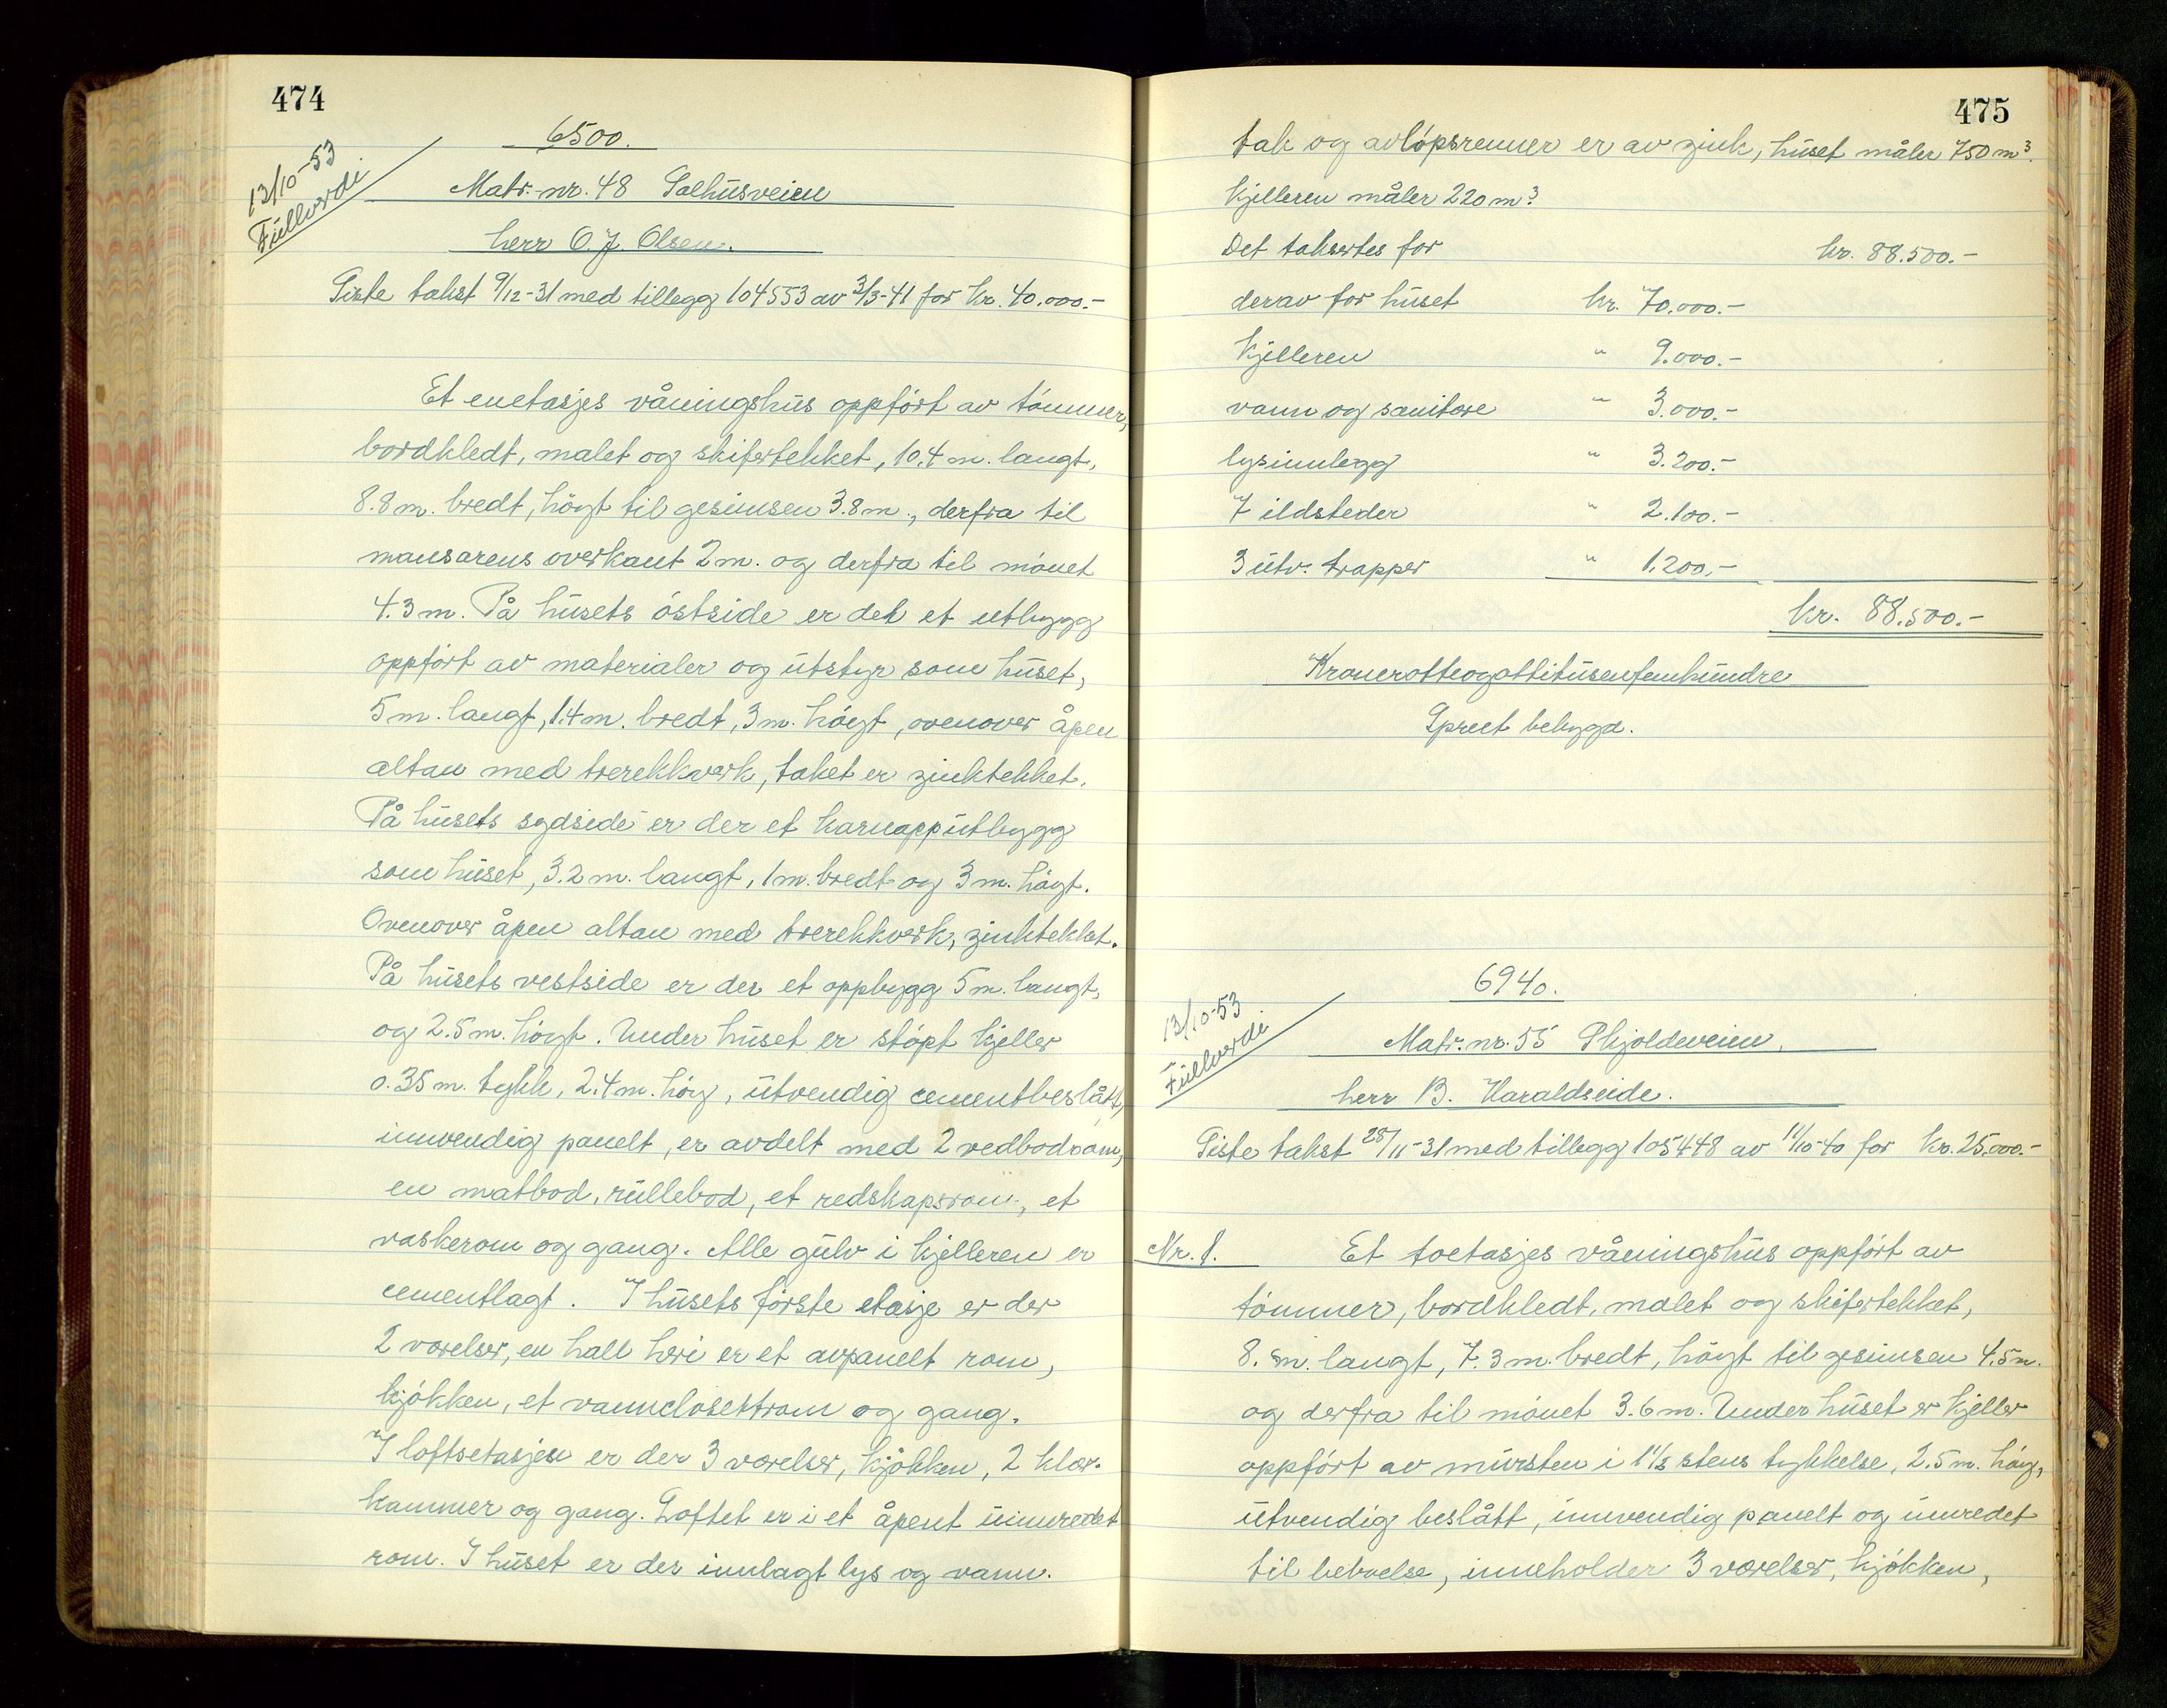 474
6500.
13/10-53
Fullverdi
Matr.-nr. 48 Salhusveien
herr O. J. Olsen.
Siste takst 9/12-31 med tillegg 104553 av 3/3-41 for kr. 40.000.-
Et enetasjes våningshus oppfört av tömmer,
bordkledt, malet og skifertekket, 10.4 m. langt,
8.8 m. bredt, höyt til gesimsen 3.8 m., derfra til
mansarens overkant 2 m. og derfra til mönet
4.3 m. På husets östside er det et utbygg
oppfört av materialer og utstyr som huset,
5 m. langt, 1.4 m. bredt, 3 m. höyt, ovenover åpen
altan med trerekkverk, taket er zinktekket.
På husets sydside er der et karnapputbygg
som huset, 3.2 m. langt, 1 m. bredt og 3 m. höyt.
Ovenover åpen altan med trerekkverk, zinktekket.
På husets vestside er der et oppbygg 5 m. langt,
og 2.5 m. höyt. Under huset er stöpt kjeller
0.35 m. tykk, 2.4 m. höy, utvendig cementbeslått,
innvendig panelt, er avdelt med 2 vedbodrom,
en matbod, rullebod, et redskapsrom, et
vaskerom og gang. Alle gulv i kjelleren er
cementlagt. I husets förste etasje er der
2 værelser, en hall heri er et avpanelt rom,
kjökken, et vannclosettrom og gang.
I loftsetasjen er der 3 værelser, kjökken, 2 klær-
kammer og gang. Loftet er i et åpent uinnredet
rom. I huset er der innlagt lys og vann.
475
tak og avlöpsrenner er av zink, huset måler 750 m³.
Kjelleren måler 220 m³
Det taksertes for kr. 88.500.-
derav for huset kr. 70.000.-
Kjelleren " 9.000.-
vann og sanitære " 3.000.-
lysinnlegg " 3.200.-
7 ildsteder " 2.100.-
3 utv. trapper " 1.200.-
kr. 88.500.-
Kronerotteogottitusenfemhundre
Spredt bebygd.
6940.
13/10-53
Fullverdi
Matr. nr. 55 Skjoldeveien,
herr B. Haraldseide.
Siste takst 28/11-31 med tillegg 105448 av 11/10-40 for kr. 25.000.-
Nr. 1. Et toetasjes våningshus oppfört av
tömmer, bordkledt, malet og skifertekket,
8. m. langt, 7.3 m. bredt, höyt til gesimsen 4.5 m.
og derfra til mönet 3.6 m. Under huset er kjeller
oppfört av mursten i 1 1/2 stens tykkelse, 2.5 m. höy,
utvendig beslått, innvendig panelt og innredet
til beboelse, inneholder 3 værelser, kjökken,